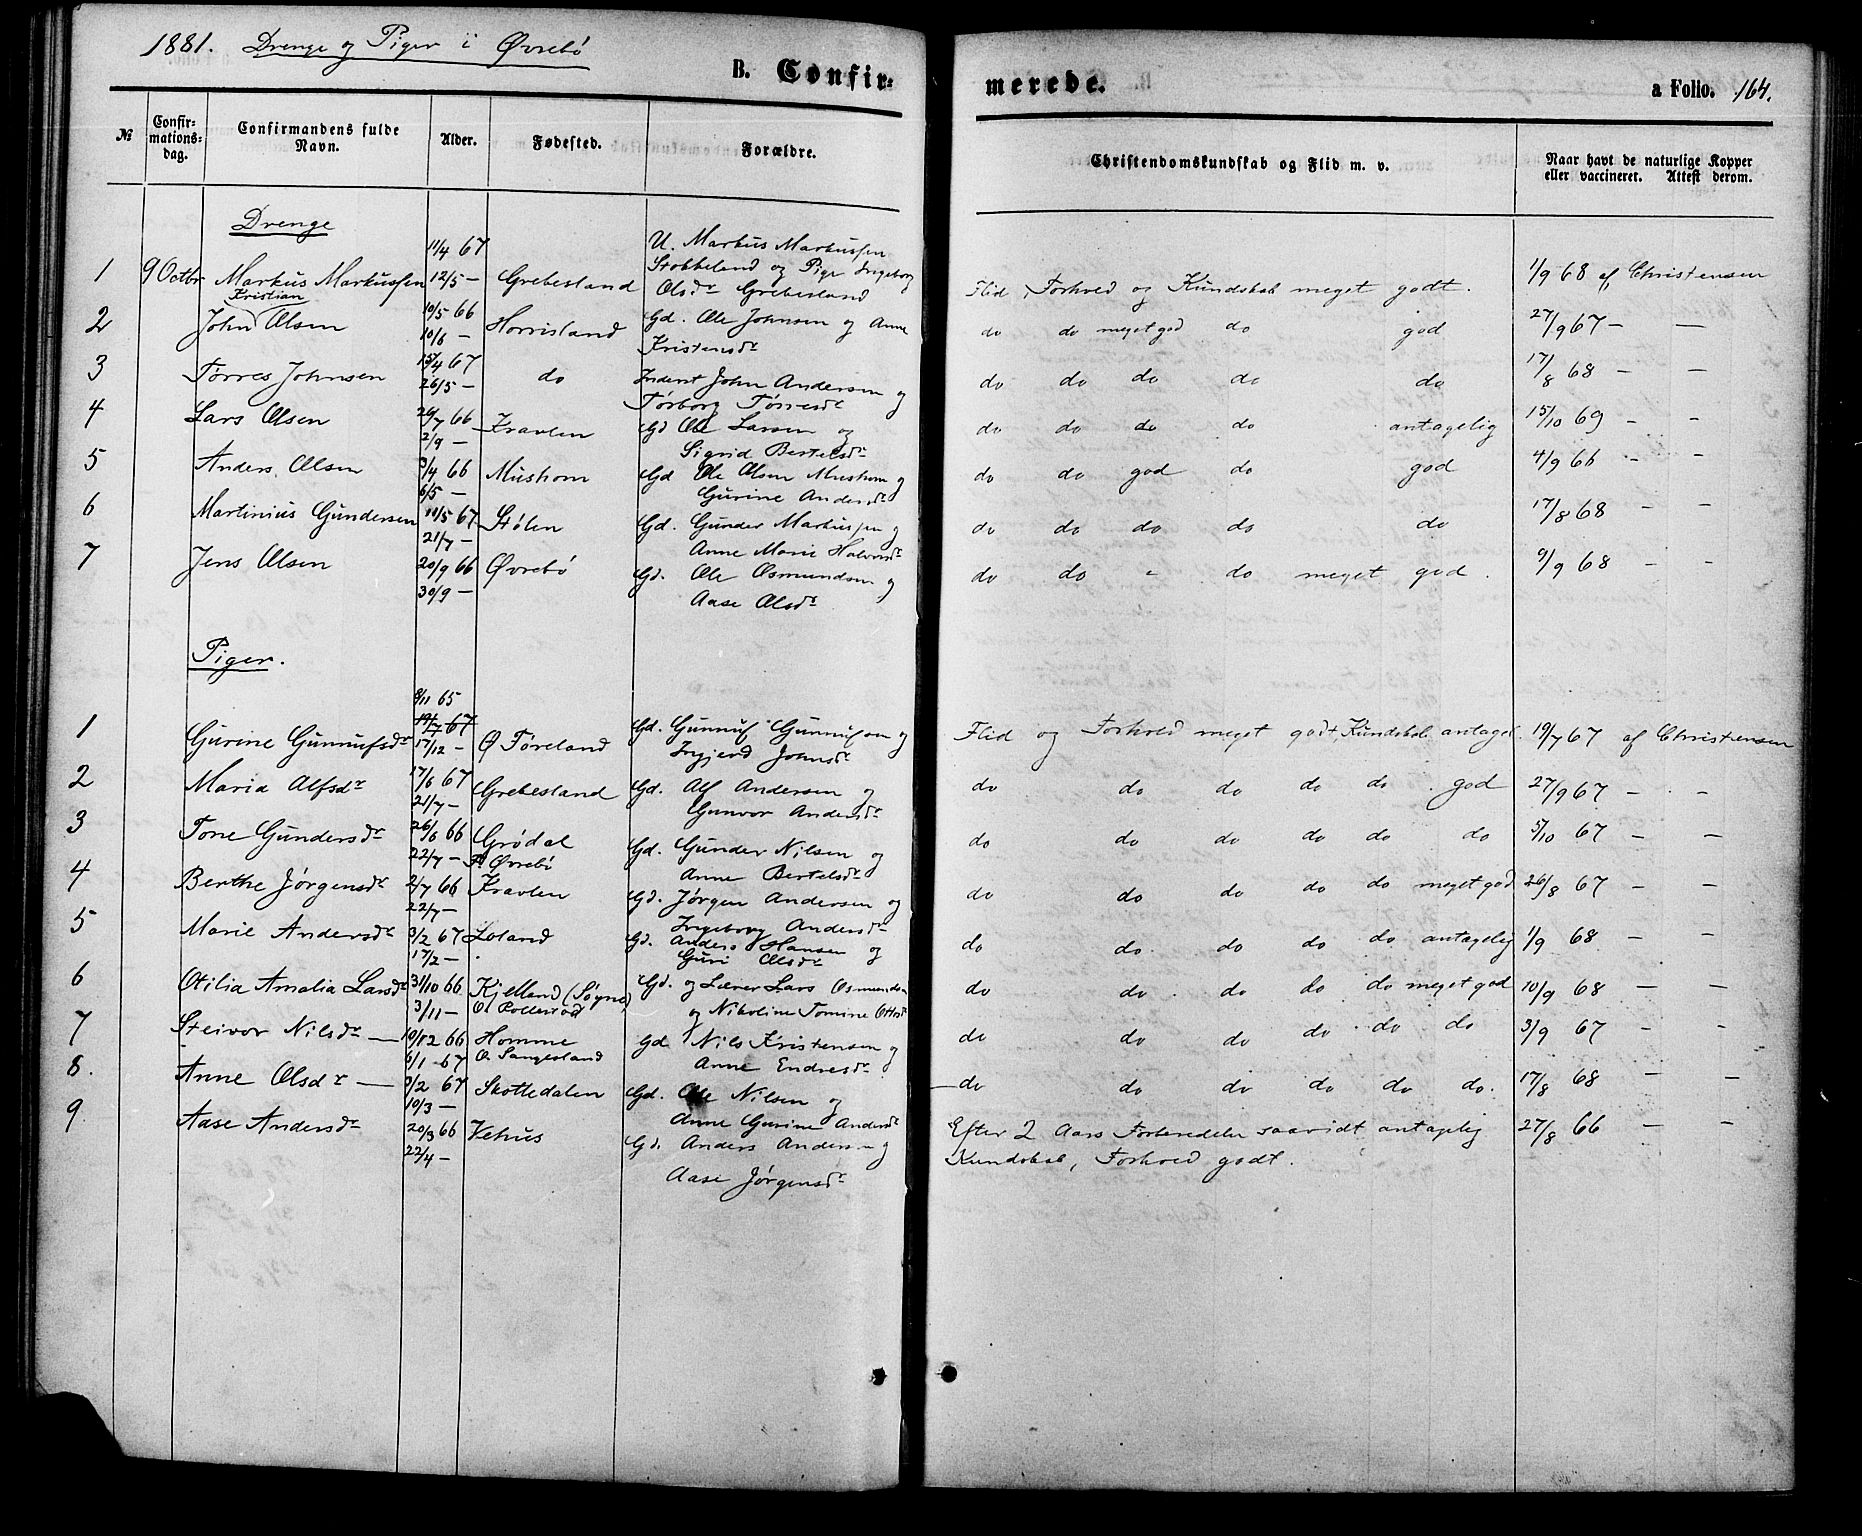 1881. Drenge og Piger i Øvrebö
B. Confirmerede.
a Folio. 164.
№ Confirmationsdag. Confirmandens fulde Navn. Alder. Fødested. Forældre. Christendomskundskab og Flid m. v. Naar havt de naturlige Kopper eller vaccineret. Attest derom.
Drenge
1 9 Octbr Markus Markussen 11/4 67 12/5 — Grebesland U. Markus Markussen Stobbeland og Pige Ingeborg Olsdr Grebesland Flid, Forhold og Kundskab meget godt. 1/9 68 af Christensen
2 John Kristian Olsen 10/5 66 10/6 — Horrisland Gd. Ole Johnsen og Anne Kristensdr do do meget god do god 27/9 67 — —
3 Tørres Johnsen 15/4 67 26/5 — do Inderst John Andersen og Tørborg Tørresdr do do do do do 17/8 68 — —
4 Lars Olsen 26/7 66 2/9 — Kravlen Gd Ole Larsen og Sigrid Bertelsdr do do do do antagelig 15/10 69 — —
5 Anders Olsen 3/4 66 6/5 — Mushom Gd Ole Olsen Mushom og Gurine Andersdr do do god do god 4/9 66 — —
6 Martinius Gundersen 11/5 67 21/7 — Stølen Gd. Gunder Markussen og Anne Marie Halvorsdr do do do do do 17/8 68 — —
7 Jens Olsen 20/9 66 30/9 — Øvrebö Gd. Ole Osmundsen og Aase Olsdr do do - do meget god. 9/9 68 — —
Piger.
1 Gurine Gunnufsdr 8/11 65 19/7 67 17/12 — Ø Føreland Gd. Gunnuf Gunnufson og Ingjerd Johnsdr Flid og Forhold meget godt, Kundskab antagel. 19/7 67 af Christensen
2 Maria Alfsdr 17/6 67 21/7 — Grebesland Gd. Alf Andersen og Gunvor Andersdr do do do do do god 27/9 67 — —
3 Tone Gundersdr 26/6 66 22/7 — Grødal P. Øvrebö Gd. Gunder Nilsen og Anne Bertelsdr do do do do do do 5/10 67 — —
4 Berthe Jørgensdr 2/7 66 22/7 — Kravlen Gd. Jørgen Andersen og Ingeborg Andersdr do do do do do meget god 26/8 67 — —
5 Marie Andersdr 3/2 67 17/2 — Loland Gd. Anders Hansen og Guri Olsdr do do do do do antagelig 1/9 68 — —
6 Otilia Amalia Larsdr 31/10 66 3/11 — Kjelland (Søgne) O. Rollestad Gd. og Lærer Lars Osmundsen og Nikoline Tomine Ottosdr do do do do do meget god 10/9 68 — —
7 Steivor Nilsdr — 10/12 66 6/1 - 67 Homme O. Sangesland Gd Nils Kristensen og Anne Endresdr do do do do do do 3/9 67 — —
8. Anne Olsdr — 9/2 67 10/3 — Skottedalen Gd. Ole Nilsen og Anne Gurine Andersdr do do do do do do. 17/8 68 — —
9 Aase Andersdr 20/3 66 22/4 — Vehus Gd. Anders Anders— og Aase Jørgensdr Efter 2 Aars Forberedelse saavidt antagelig Kundskab, Forhold godt. 27/8 66 — —